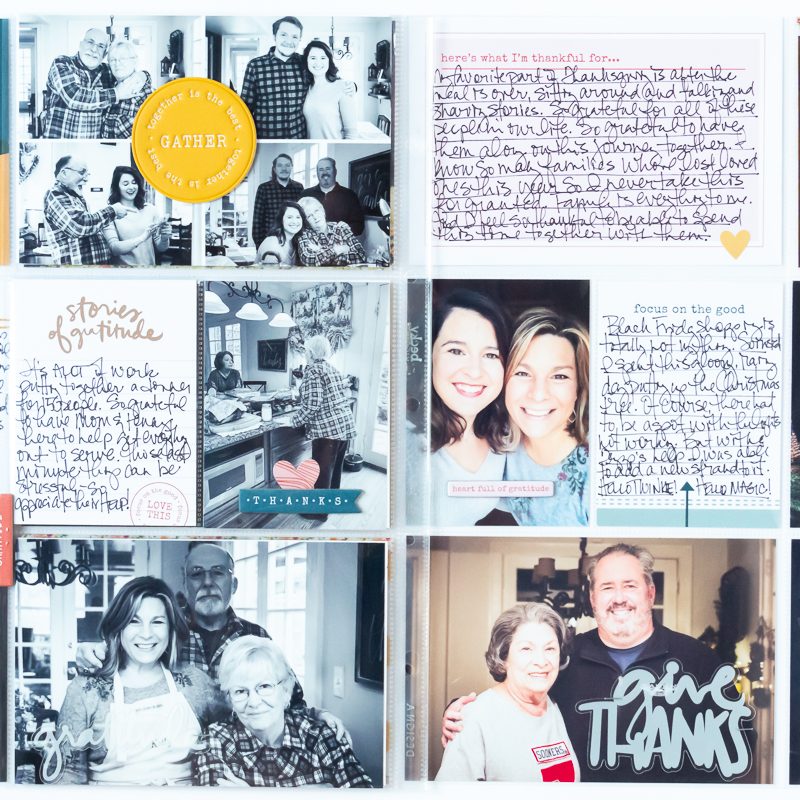 together is the best · together is the best ·
GATHER
here's what I'm thankful for...
My favorite part of Thanksgiving is after the
meal is over, sitting around and talking and
sharing stories. So grateful for all of these
people in our life. So grateful to have
them along on this journey together.
know so many families who lost loved
ones this year so I never take this
for granted. Family is everything to me.
And I feel so thankful to be able to spend
this time together with them.
stories
of gratitude
It's a lot of work
putting together a dinner
for 15 people. So grateful
to have Mom & Jenny
here to help get everything
out to serve.
simple thing can be
stressful so
appreciate their HELP!
focus on the good
LOVE
THIS
THANKS
becky
heart full of gratitude
focus on the good
Black Friday shopping is
totally not my thing. So instead
I spent this gloomy, rainy
day putting up the Christmas
tree. Of course, there had
to be a spot with the lights
not working. But with
help I was able
to add a new strand to it.
HELLO TWINKLE! HELLO MAGIC!
grateful
DESIGN A
SOONERS
give
THANKS